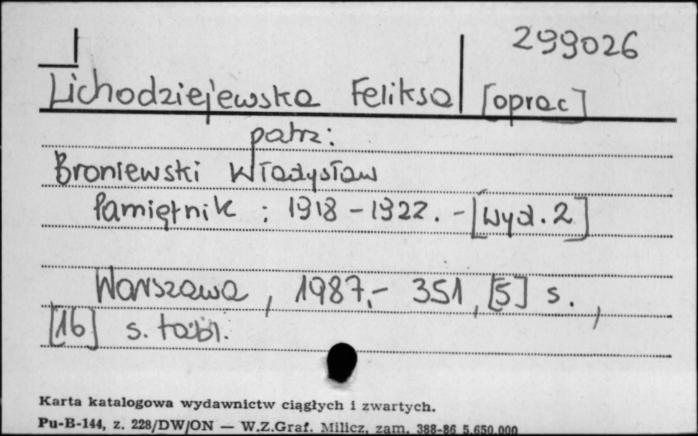 299026
Lichodziejewska Feliksa [oprac]
patrz:
Broniewski Władysław
Pamiętnik : 1918 - 1922. - [wyd. 2]
Warszawa, 1987.- 351, [5] s.,
[16] s. tabl.
Karta katalogowa wydawnictw ciągłych i zwartych.
Pu-B-144, z. 228/DW/ON — W.Z.Graf. Milicz, zam. 388-86 5.650.000